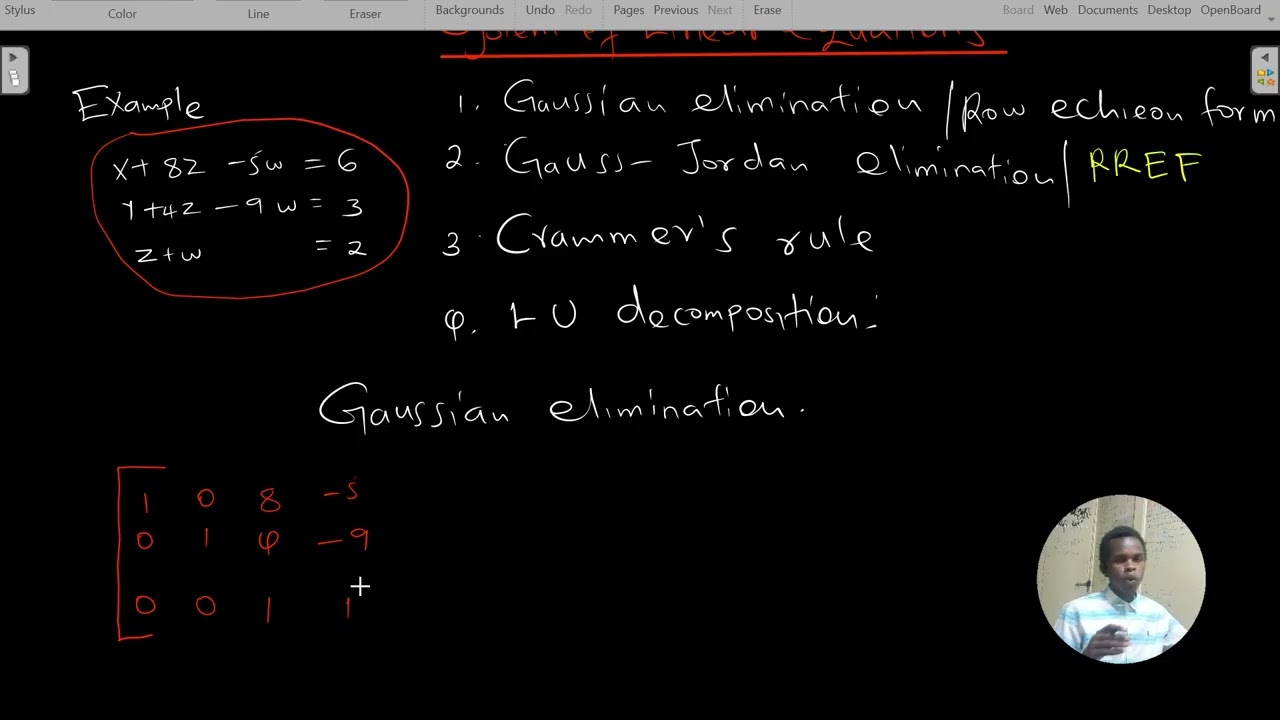 Stylus Color Line Eraser Backgrounds Undo Redo Pages Previous Next Erase Board Web Documents Desktop OpenBoard
System of Linear Equations
Example
x + 8z - 5w = 6
y + 4z - 9w = 3
z + w = 2
1. Gaussian elimination / Row echleon form
2. Gauss - Jordan elimination / RREF
3. Crammer's rule
4. LU decomposition:
Gaussian elimination.
1 0 8 -5
0 1 4 -9
0 0 1 1